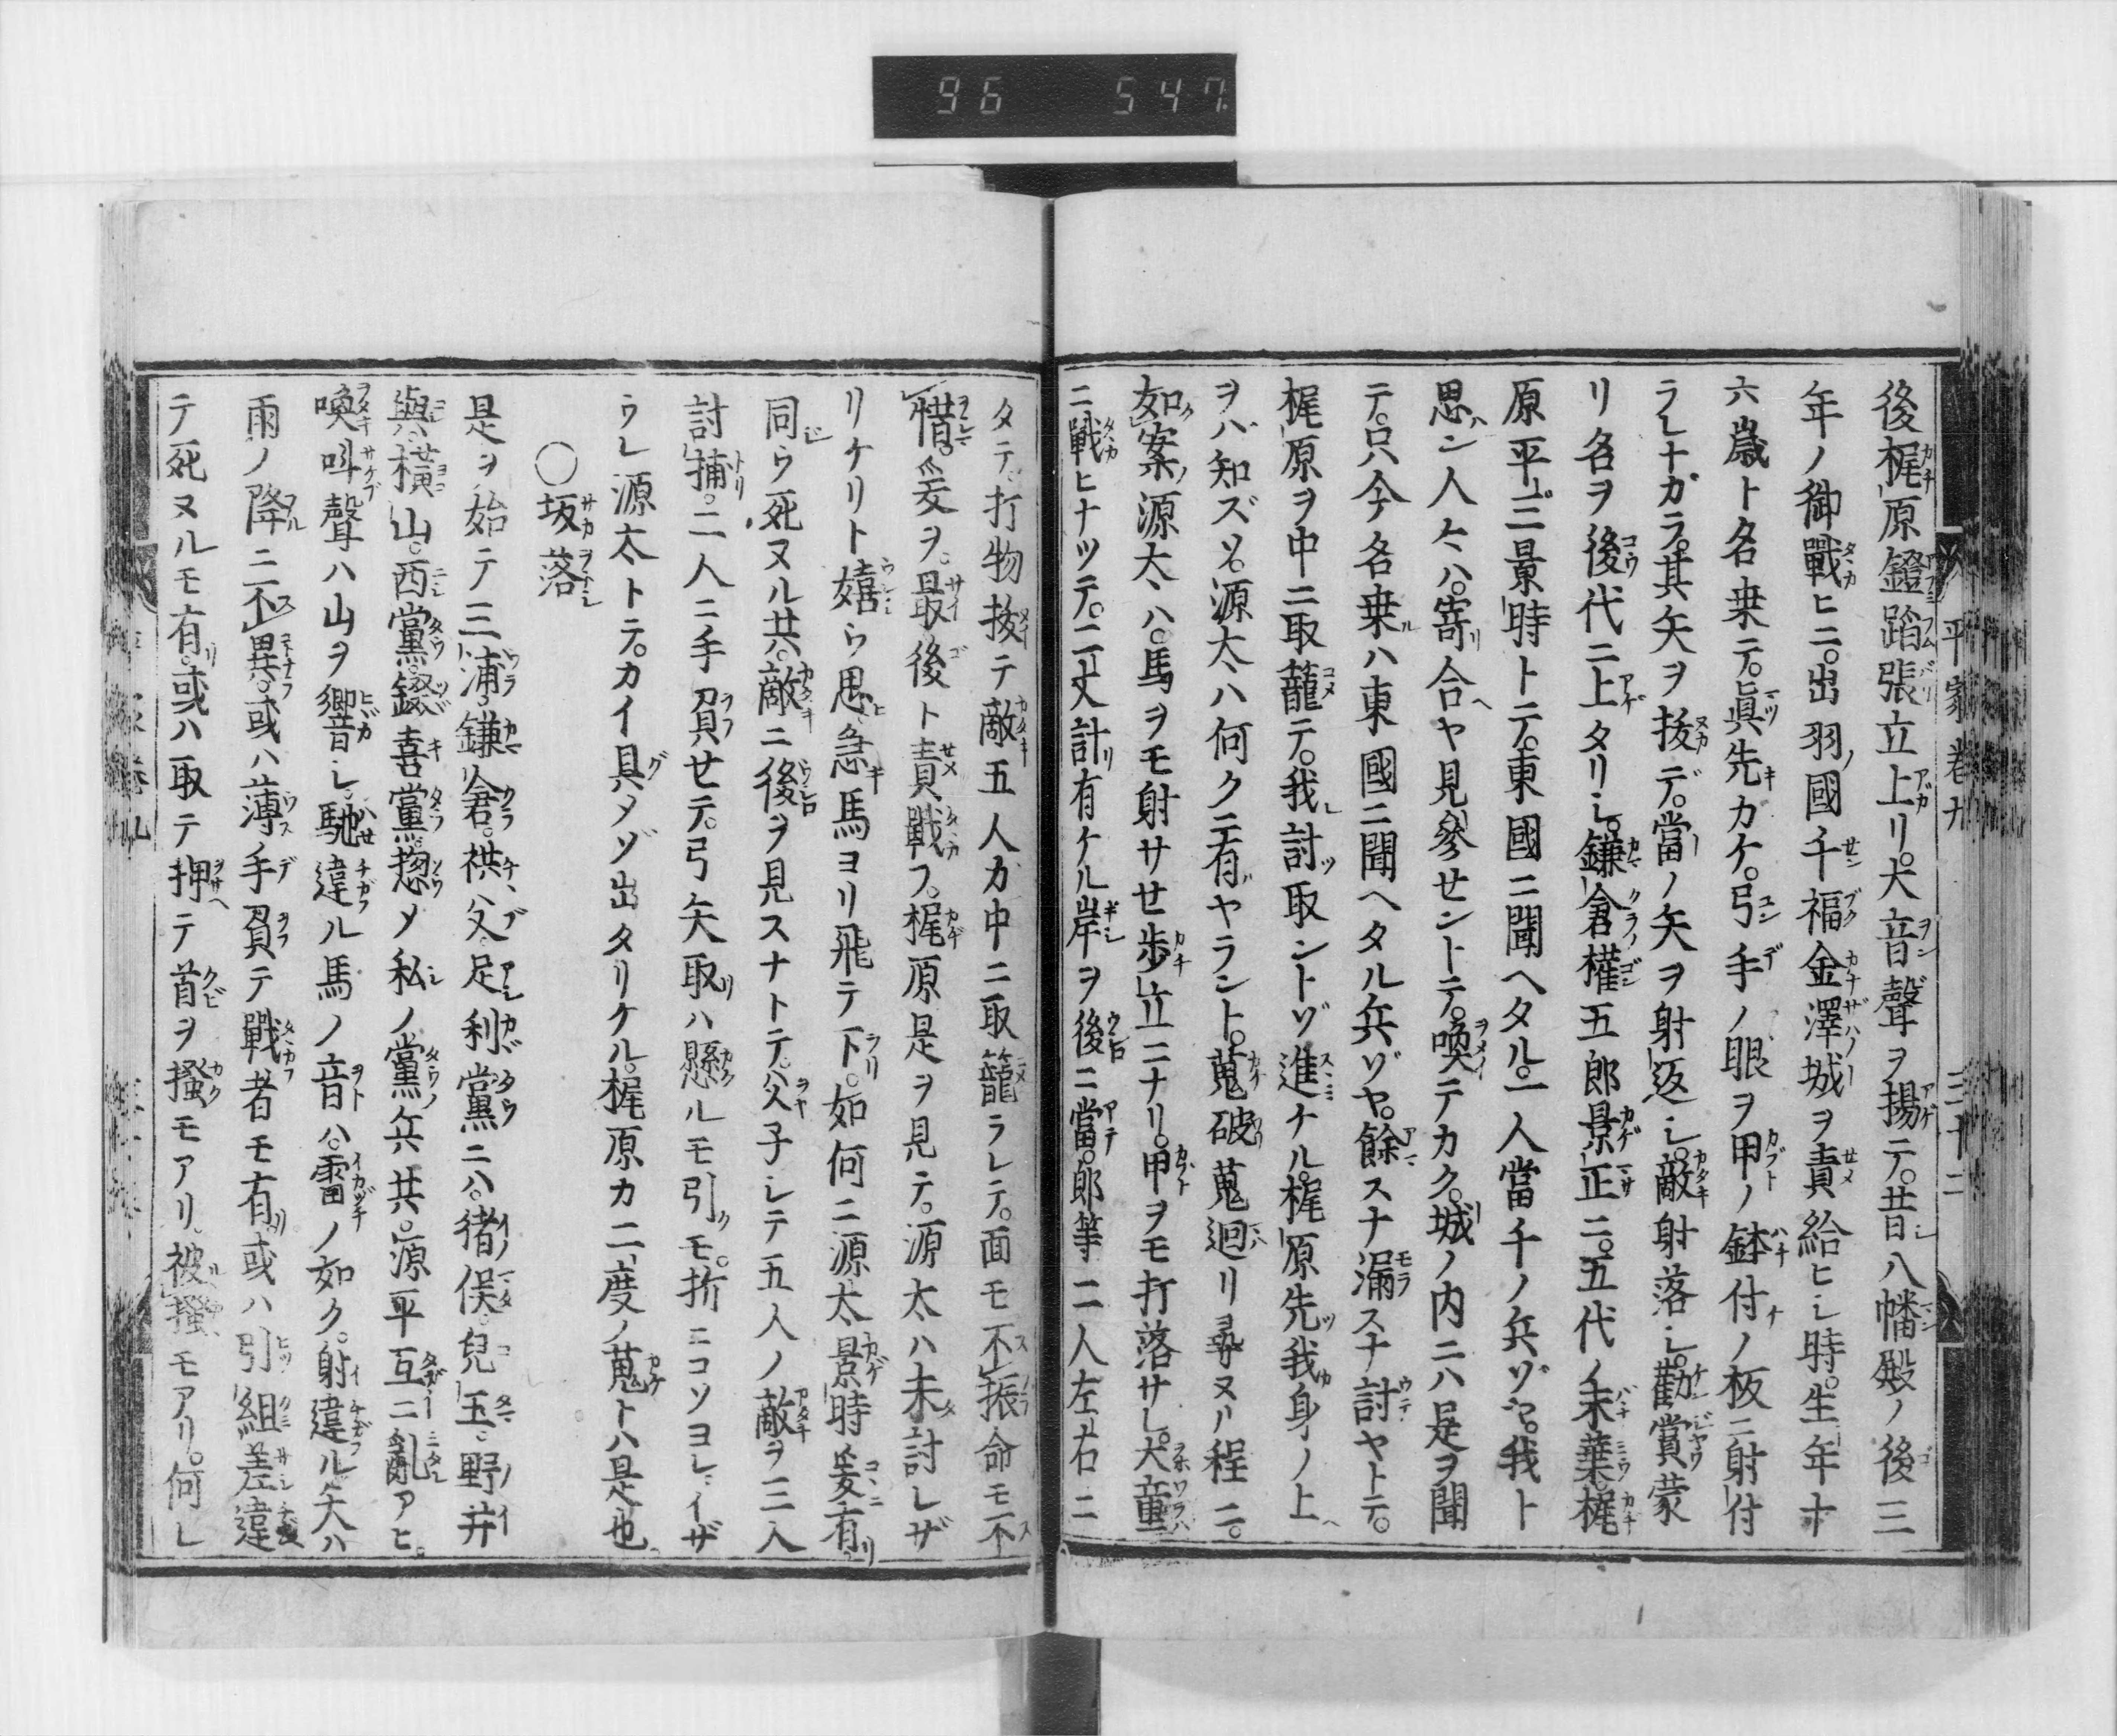 96 547
平家巻九 三十二
後梶原鐙蹈張立上リ。大音聲ヲ揚テ。昔八幡殿ノ後三
年ノ御戰ヒニ。出羽ノ國千福金澤城ヲ責給ヒシ時。生年十
六歳ト名乗テ。眞先カケ。弓手ノ眼ヲ甲ノ鉢付ノ板ニ射付
ラレナガラ。其矢ヲ抜デ。當ノ矢ヲ射返シ。敵射落シ。勸賞蒙
リ名ヲ後代ニ上タリシ。鎌倉權五郎景正ニ。五代ノ末葉。梶
原平三景時トテ。東國ニ聞ヘタル。一人當千ノ兵ゾヤ。我ト
思ン人々ハ。寄合ヤ見參セントテ。喚テカク。城ノ内ニハ是ヲ聞
テ。只今名乗ルハ東國ニ聞ヘタル兵ゾヤ。餘スナ漏スナ討ヤトテ。
梶原ヲ中ニ取籠テ。我討取ントゾ進ケル。梶原先我身ノ上
ヲバ知ズソ。源太ハ何クニ有ヤラント。蒐破蒐廻リ尋ヌル程ニ。
如案源太ハ。馬ヲモ射サセ歩立ニナリ。甲ヲモ打落サレ。大童
ニ戰ヒナツテ。二丈計有ケル岸ヲ後ニ當。郎等二人左右ニ
タテ。打物抜テ敵五人カ中ニ取籠ラレテ。面モ不振命モ不
惜。爰ヲ。最後ト責戰フ。梶原是ヲ見テ。源太ハ未討レザ
リケリト嬉ウ思ヒ急キ馬ヨリ飛テ下。如何ニ源太景時爰有リ
同ウ死ヌル共。敵ニ後ヲ見スナトテ。父子シテ五人ノ敵ヲ三人
討捕。二人ニ手負セテ。弓矢取ハ懸ルモ引モ。折ニコソヨレ。イザ
ウレ源太トテ。カイ具メゾ出タリケル。梶原カ二度ノ蒐トハ是也
○坂落
是ヲ始テ三浦。鎌倉。秩父。足利黨ニハ。猪俣。兒玉。野井
與。横山。西黨。綴喜黨。惣メ私ノ黨ノ兵共。源平互ニ亂アヒ。
喚叫聲ハ山ヲ響シ。馳違ル馬ノ音ハ。雷ノ如ク。射違ル矢ハ
雨ノ降ニ不異。或ハ薄手負テ戰者モ有リ。或ハ引組差違
テ死ヌルモ有。或ハ取テ押テ首ヲ掻モアリ。被掻モアリ。何レ